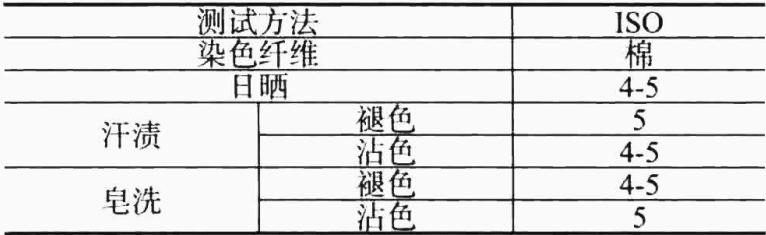 测试方法 ISO
染色纤维 棉
日晒 4-5
汗渍 褪色 5
沾色 4-5
皂洗 褪色 4-5
沾色 5